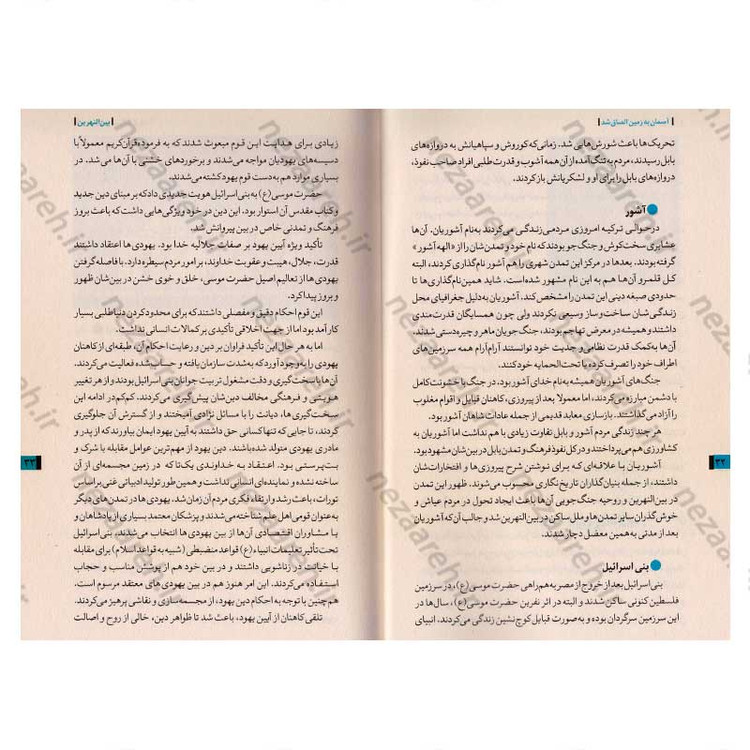 | آسمان به زمین الصاق شد |
تحریک‌ها باعث شورش‌هایی شد. زمانی‌که کوروش و سپاهیانش به دروازه‌های
بابل رسیدند، مردم به تنگ آمده از آن همه آشوب و قدرت طلبی افراد صاحب نفوذ،
دروازه‌های بابل را برای او و لشکریانش باز کردند.
آشور
در حوالی ترکیه امروزی مردمی زندگی می‌کردند به‌نام آشوریان. آن‌ها
عشایری سخت‌کوش و جنگ‌جو بودند که نام خود و تمدن‌شان را از «الهه آشور»
گرفته بودند. بعدها در مرکز این تمدن شهری را هم آشور نام‌گذاری کردند، البته
کل قلمرو آن‌ها هم به این نام مشهور شده است. شاید همین نام‌گذاری‌ها تا
حدودی صبغه دینی این تمدن را مشخص کند. آشوریان به‌دلیل جغرافیای محل
زندگی‌شان ساخت‌وساز وسیعی نکردند ولی چون همسایگان قدرت‌مندی
داشتند و همیشه در معرض تهاجم بودند، جنگ‌جویان ماهر و چیره‌دستی شدند.
آن‌ها به‌کمک قدرت نظامی و جدیت خود توانستند آرام‌آرام همه سرزمین‌های
اطراف خود را تصرف کرده یا تحت‌الحمایه خود کنند.
جنگ‌های آشوریان همیشه به نام خدای آشور بود. در جنگ با خشونت کامل
با دشمن مبارزه می‌کردند، اما معمولاً بعد از پیروزی، کاهنان قبایل و اقوام مغلوب
را آزاد می‌گذاشتند. بازسازی معابد قدیمی از جمله عادات شاهان آشور بود.
هر چند زندگی مردم آشور و بابل تفاوت زیادی با هم نداشت اما آشوریان به
کشاورزی هم می‌پرداختند و در کل نفوذ فرهنگ و تمدن بابل در بین‌شان مشهود بود.
آشوریان با علاقه‌ای که برای نوشتن شرح پیروزی‌ها و افتخارات‌شان
داشتند، از جمله بنیان‌گذاران تاریخ نگاری محسوب می‌شوند. هجوم آشوریان
در بین‌النهرین و روحیه جنگ‌جویی آن‌ها باعث ایجاد تحول در مردم عیاش و
خوش‌گذران سایر تمدن‌ها و ملل ساکن در بین‌النهرین شد و جالب آن‌که آشوریان
بعد از مدتی به همین معضل دچار شدند.
بنی اسرائیل
بنی‌اسرائیل بعد از خروج از مصر به هم‌راهی حضرت موسی(ع)، در سرزمین
فلسطین کنونی ساکن شدند و البته در اثر نفرین حضرت موسی(ع)، سال‌ها در
این سرزمین سرگردان بوده و به‌صورت قبایل کوچ‌نشین زندگی می‌کردند. انبیای
۳۲
| بین‌النهرین |
زیادی برای هدایت این قوم مبعوث شدند که به فرموده قرآن‌کریم معمولاً با
دسیسه‌های یهودیان مواجه می‌شدند و برخوردهای خشنی با آن‌ها می‌شد. در
بسیاری موارد هم به‌دست قوم یهود کشته می‌شدند.
حضرت موسی(ع) به بنی‌اسرائیل هویت جدیدی داد که بر مبنای دین جدید
و کتاب مقدس آن استوار بود. این دین در خود ویژگی‌هایی داشت که باعث بروز
فرهنگ و تمدنی خاص در بین پیروانش شد.
تأکید ویژه آیین یهود بر صفات جلالیه خدا بود. یهودی‌ها اعتقاد داشتند
قدرت، جلال، هیبت و عقوبت خداوند، بر امور مردم سیطره دارد. با فاصله گرفتن
یهودی‌ها از تعالیم اصیل حضرت موسی، خلق و خوی خشن در بین‌شان ظهور
و بروز پیدا کرد.
این قوم احکام دقیق و مفصلی داشتند که برای محدود کردن دنیاطلبی بسیار
کارآمد بود اما از جهت اخلاقی تأکیدی بر کمالات انسانی نداشت.
اما به هر حال این تأکید فراوان بر دین و رعایت احکام آن، طبقه‌ای از کاهنان
یهودی را به وجود آورد که به‌شدت سازمان یافته و حساب شده، فعالیت می‌کردند.
آن‌ها با سخت‌گیری و دقت مشغول تربیت جوانان بنی اسرائیل بودند و از هر تغییر
هویتی و فرهنگی مخالف دین‌شان پیش‌گیری می‌کردند. کم‌کم در ادامه این
سخت‌گیری‌ها، دیانت را با مسائل نژادی آمیختند و از گسترش آن جلوگیری
کردند، تا جایی که تنها کسانی حق داشتند به آیین یهود ایمان بیاورند که از پدر و
مادری یهودی متولد شده باشند. دین یهود از مهم‌ترین عوامل مقابله با شرک و
بت‌پرستی بود. اعتقاد به خداوندی یکتا که در زمین مجسمه‌ای از آن
ساخته نشده و نماینده‌ای انسانی نداشت و همین‌طور تولید ادبیاتی غنی بر اساس
تورات، باعث رشد و ارتقاء فکری مردم آن زمان شد. یهودی‌ها در تمدن‌های دیگر
به‌عنوان قومی اهل علم شناخته می‌شدند و پزشکان معتمد بسیاری از پادشاهان و
یا مشاوران اقتصادی آن‌ها از بین یهودی‌ها انتخاب می‌شدند. بنی‌اسرائیل
تحت تأثیر تعلیمات انبیاء(ع) قواعد منضبطی (شبیه به قواعد اسلام) برای مقابله
با خیانت در زناشویی داشتند و در همین جهت هم از پوشش مناسب و حجاب
استفاده می‌کردند. این امر هنوز هم در بین یهودی‌های معتقد مرسوم است.
هم‌چنین با توجه به احکام دین یهود، از مجسمه‌سازی و نقاشی پرهیز می‌کردند.
تلقی کاهنان از آیین یهود، باعث شد تا ظواهر دین، خالی از روح و اصالت
۳۳
nezaareh.ir